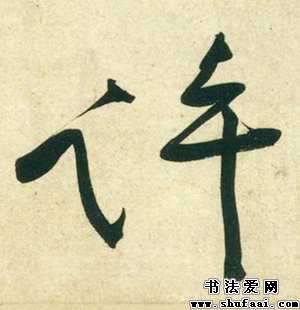 许
书法爱网
www.shufaai.com